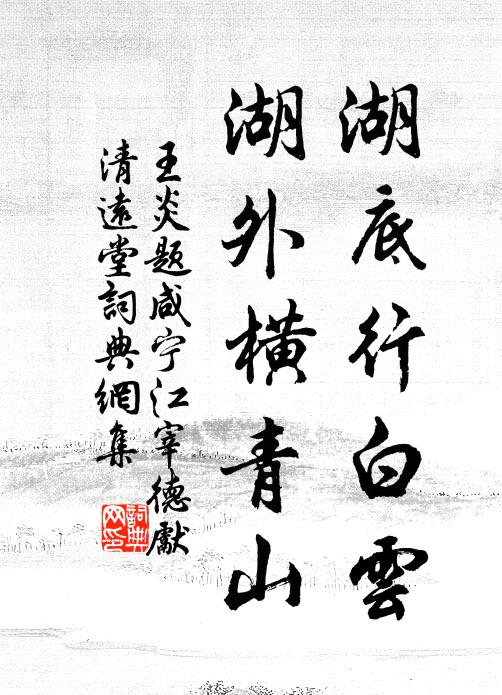 湖底行白雲
湖外横青山
王炎题咸宁江宰德獻
清遠堂詞典網集
詞典
网印